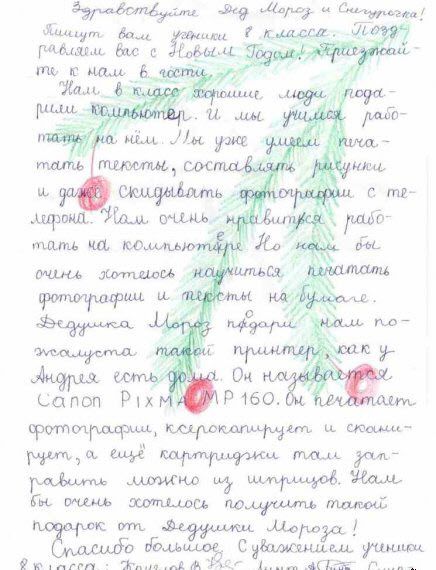 Здравствуйте Дед Мороз и Снегурочка!
Пишут вам ученики 8 класса. Позд-
равляем вас с Новым Годом! Приезжай-
те к нам в гости.
Нам в класс хорошие люди пода-
рили компьютер. И мы учимся рабо-
тать на нём. Мы уже умеем печа-
тать тексты, составлять рисунки
и даже скидывать фотографии с те-
лефона. Нам очень нравиться рабо-
тать на компьютере Но нам бы
очень хотелось научиться печатать
фотографии и тексты на бумаге.
Дедушка Мороз подари нам по-
жалуста такой принтер, как у
Андрея есть дома. Он называется
Canon PixMA MP 160. Он печатает
фотографии, ксерокапирует и скани-
рует, а ещё картриджи там зап-
равить можно из шприцов. Нам
бы очень хотелось получить такой
подарок от Дедушки Мороза!
Спасибо большое. С уважением ученики
8 класса: